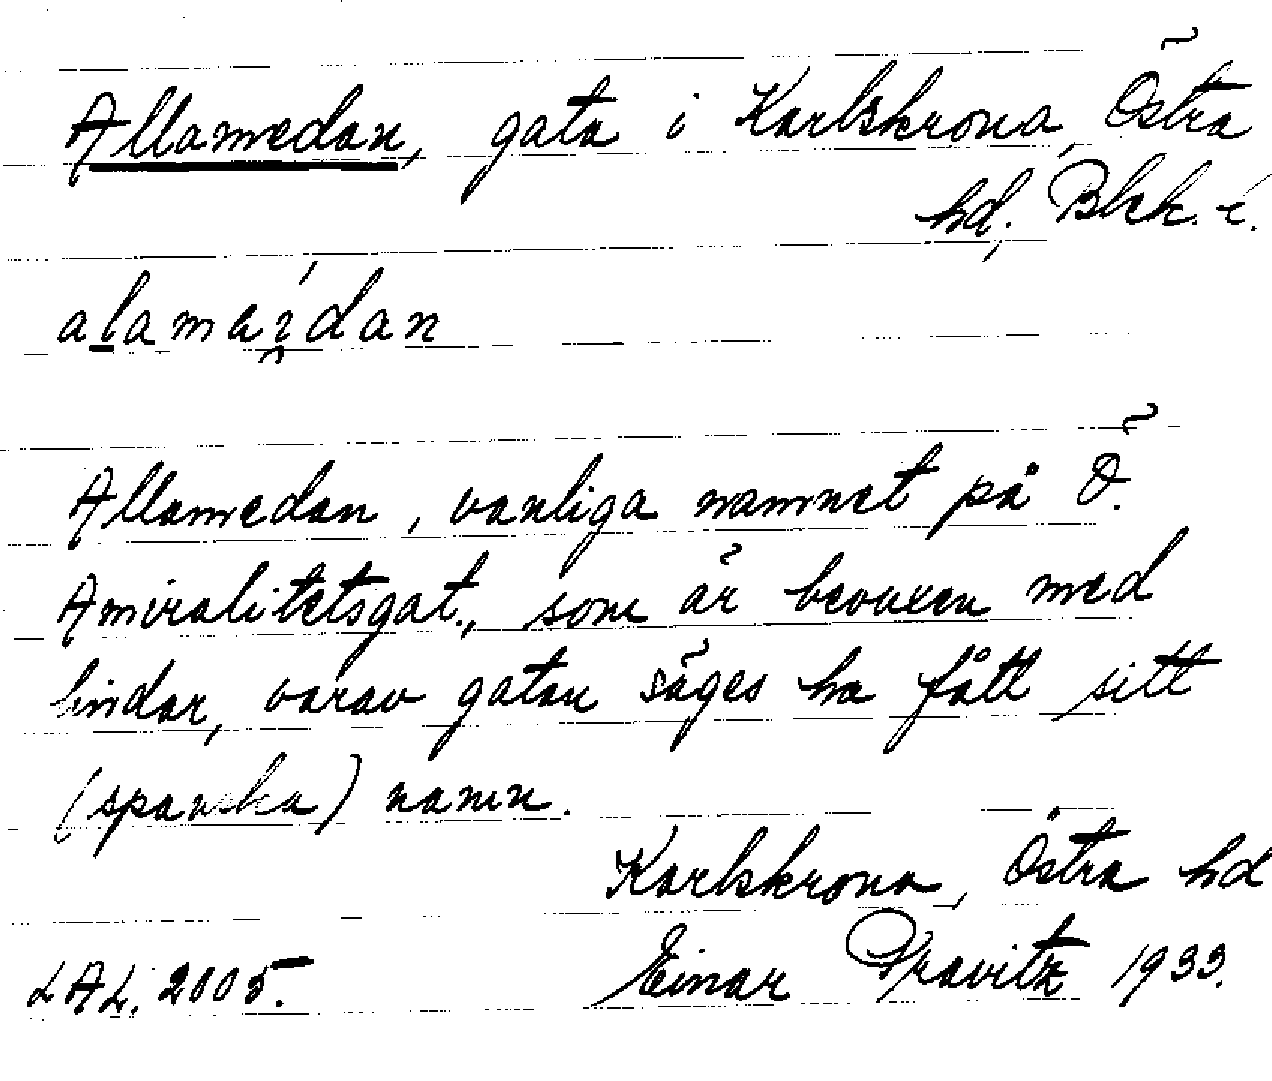 Allamedan, gata i Karlskrona, Östra
hd, Blek. l.
alamaídan
Allamedan, vanliga namnet på Ö.
Amiralitetsgat., som är bevuxen med
lindar, varav gatan säges ha fått sitt
(spanska) namn.
Karlskrona, Östra hd
LAL. 2005. Einar Kravitz 1933.